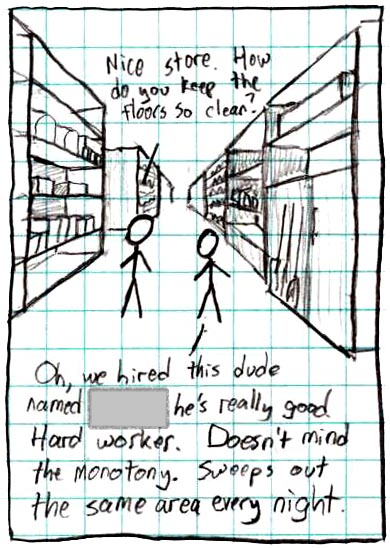 Nice store. How
do you keep the
floors so clean?
Oh, we hired this dude
named he's really good.
Hard worker. Doesn't mind
the monotony. Sweeps out
the same area every night.